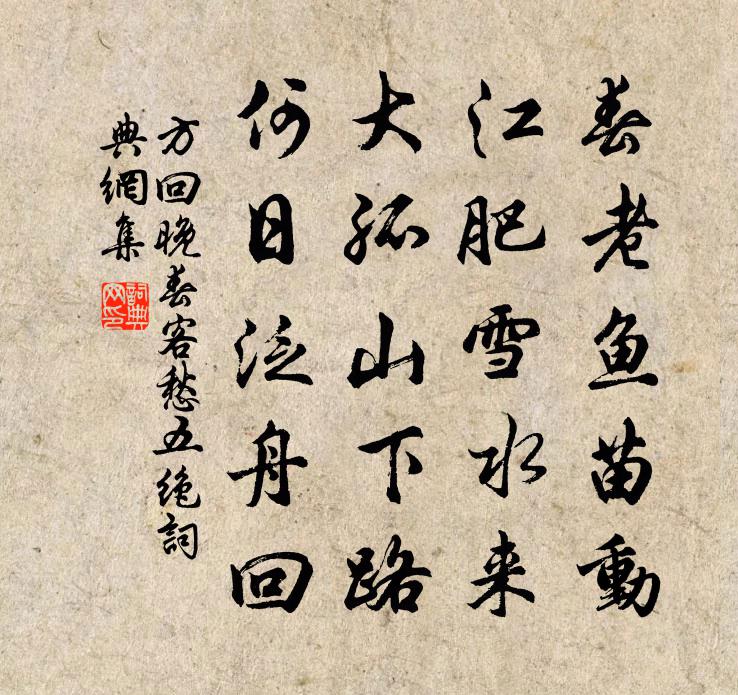 春老鱼苗動
江肥雪水来
大孤山下路
何日泛舟回
方回晚春客愁五绝詞
典網集
詞典網印